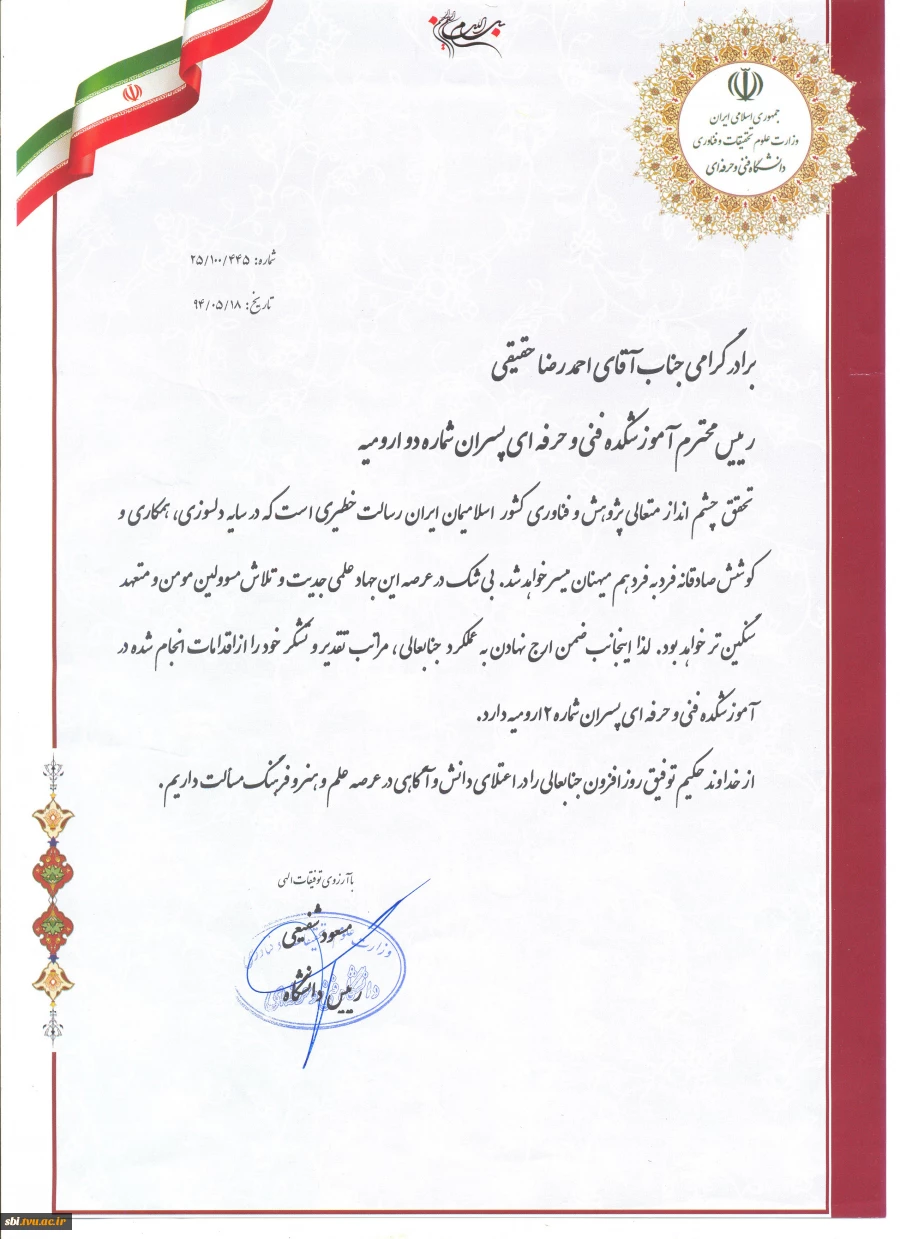 بسم الله الرحمن الرحیم
جمهوری اسلامی ایران
وزارت علوم تحقیقات و فناوری
دانشگاه فنی و حرفه ای
شماره: ۲۵/۱۰۰/۴۴۵
تاریخ: ۹۴/۰۵/۱۸
برادر گرامی جناب آقای احمد رضا حقیقی
رییس محترم آموزشکده فنی و حرفه ای پسران شماره دو ارومیه
تحقق چشم انداز متعالی پژوهش و فناوری کشور اسلامیمان ایران رسالت خطیری است که در سایه دلسوزی، همکاری و
کوشش صادقانه فرد به فرد هم میهنان میسر خواهد شد. بی شک در عرصه این جهاد علمی جدیت و تلاش مسوولین مومن و متعهد
سنگین تر خواهد بود. لذا اینجانب ضمن ارج نهادن به عملکرد جنابعالی، مراتب تقدیر و تشکر خود را از اقدامات انجام شده در
آموزشکده فنی و حرفه ای پسران شماره ۲ ارومیه دارد.
از خداوند حکیم توفیق روز افزون جنابعالی را در اعتلای دانش و آگاهی در عرصه علم و هنر و فرهنگ مسالت داریم.
با آرزوی توفیقات الهی
مسعود شفیعی
رییس دانشگاه
sbl.tvu.ac.ir